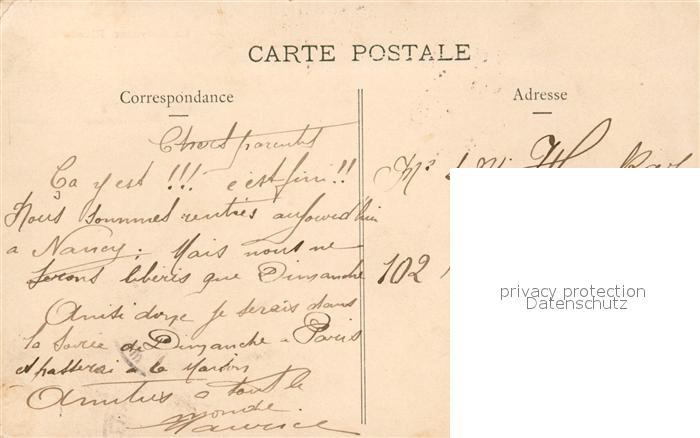 CARTE POSTALE
Correspondance
Adresse
Chers parents
Ça y est !!! c'est fini !!
Nous sommes rentrés aujourd'hui
a Nancy. Mais nous ne
serons libérés que Dimanche
Ainsi donc je serais dans
la soirée de Dimanche a Paris
et passerai a la maison
Amitiés a tout le
monde.
Maurice
102
privacy protection
Datenschutz